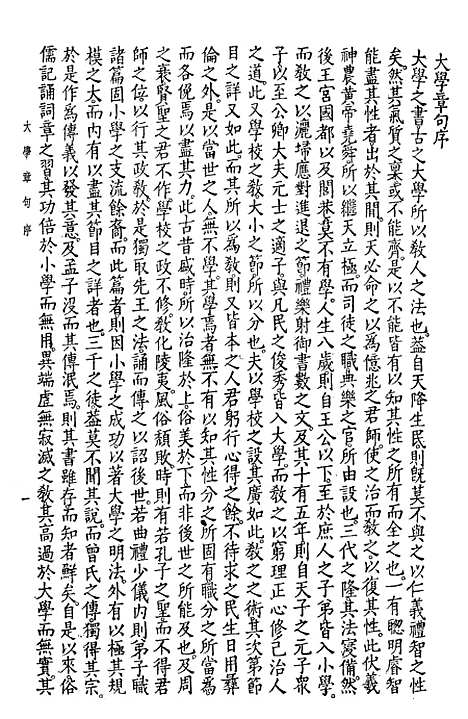 大學章句序
大學之書古之大學所以敎人之法也蓋自天降生民則旣莫不與之以仁義禮智之性
矣然其氣質之稟或不能齊是以不能皆有以知其性之所有而全之也一有聰明睿智
能盡其性者出於其間則天必命之以爲億兆之君師使之治而敎之以復其性此伏羲
神農黃帝堯舜所以繼天立極而司徒之職典樂之官所由設也三代之隆其法寖備然
後王宮國都以及閭巷莫不有學人生八歲則自王公以下至於庶人之子弟皆入小學
而敎之以灑掃應對進退之節禮樂射御書數之文及其十有五年則自天子之元子衆
子以至公卿大夫元士之適子與凡民之俊秀皆入大學而敎之以窮理正心修己治人
之道此又學校之敎大小之節所以分也夫以學校之設其廣如此敎之之術其次第節
目之詳又如此而其所以爲敎則又皆本之人君躬行心得之餘不待求之民生日用彝
倫之外是以當世之人無不學其學焉者無不有以知其性分之所固有職分之所當爲
而各俛焉以盡其力此古昔盛時所以治隆於上俗美於下而非後世之所能及也及周
之衰賢聖之君不作學校之政不修敎化陵夷風俗頹敗時則有若孔子之聖而不得君
師之位以行其政敎於是獨取先王之法誦而傳之以詔後世若曲禮少儀內則弟子職
諸篇固小學之支流餘裔而此篇者則因小學之成功以著大學之明法外有以極其規
模之大而內有以盡其節目之詳者也三千之徒蓋莫不聞其說而曾氏之傳獨得其宗
於是作爲傳義以發其意及孟子沒而其傳泯焉則其書雖存而知者鮮矣自是以來俗
儒記誦詞章之習其功倍於小學而無用異端虛無寂滅之敎其高過於大學而無實其
大學章句序
一